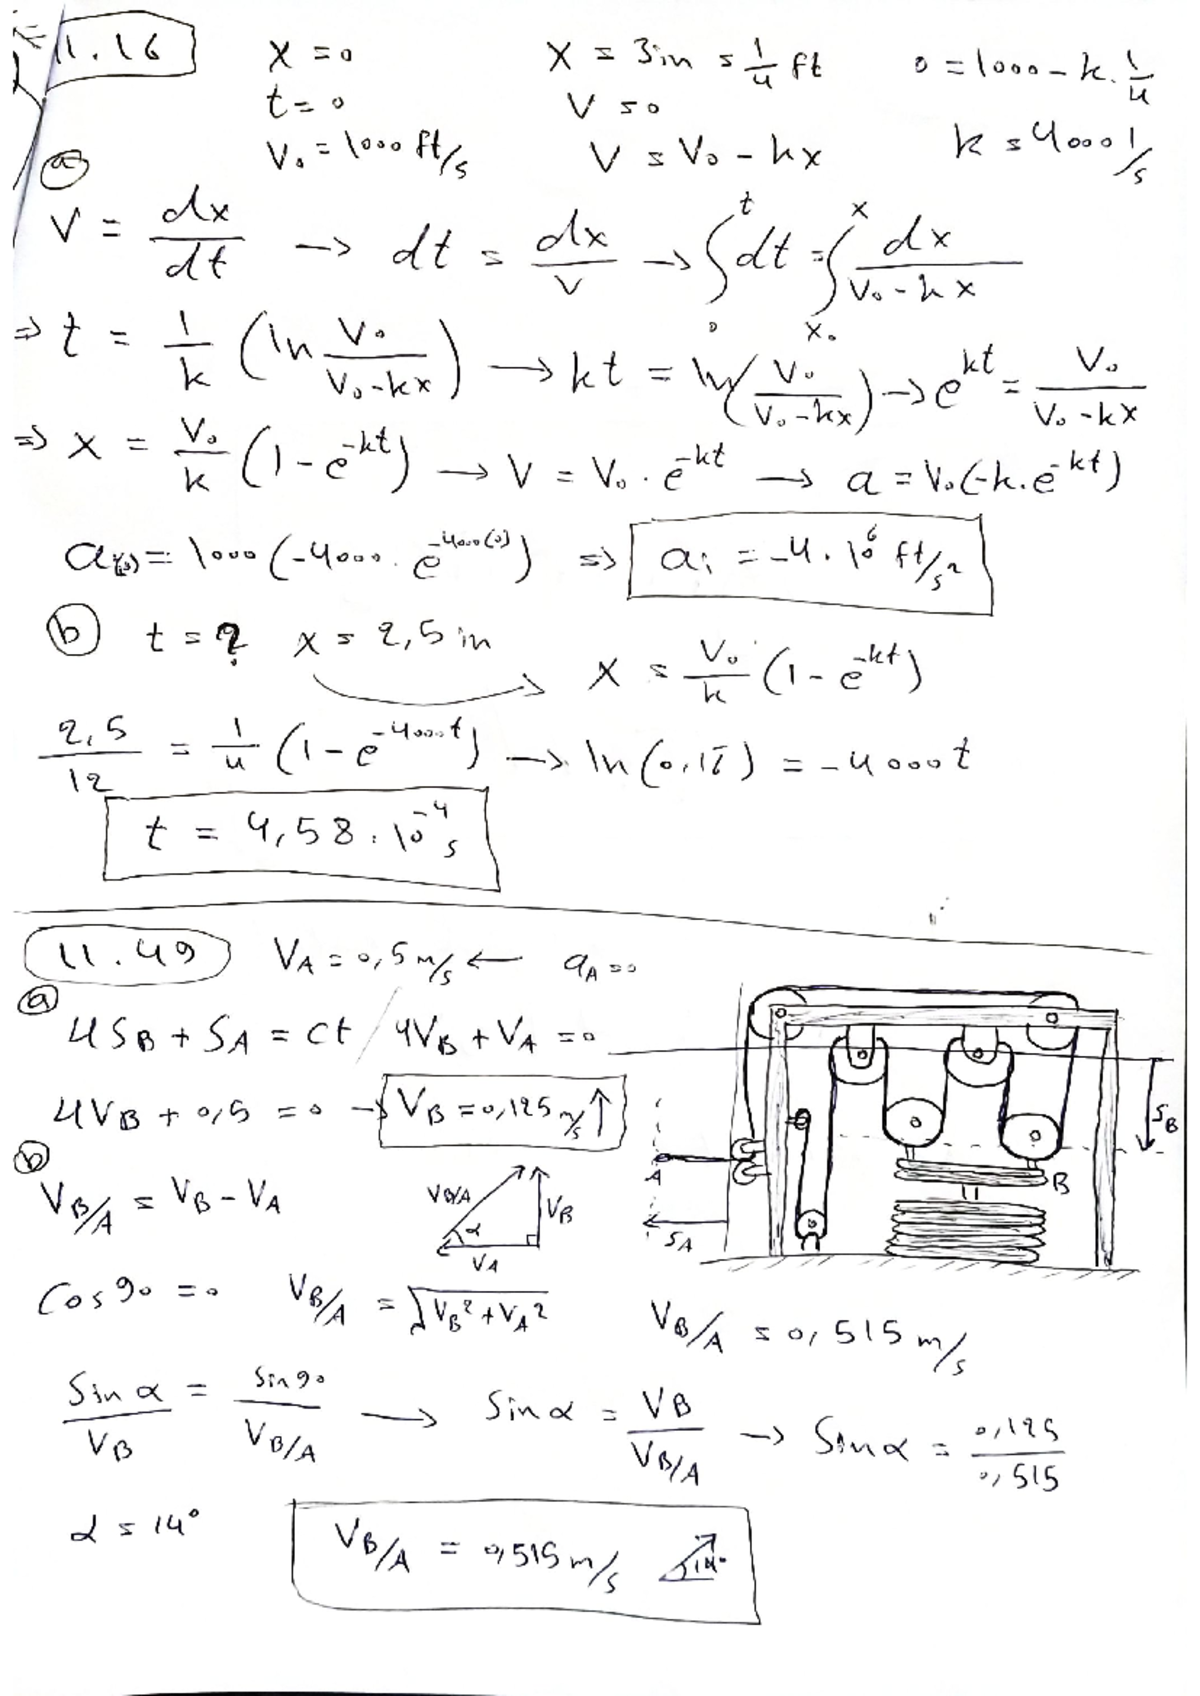 11.16   x = 0   x = 3in = 1/4 ft   0 = 1000 - k. 1/4
t = 0   V = 0
V₀ = 1000 ft/s   V = V₀ - kx   k = 4000 1/s
(a)
V = dx/dt → dt = dx/V → ∫₀ᵗ dt = ∫ₓ₀ˣ dx/(V₀ - kx)
⇒ t = 1/k (ln V₀/(V₀-kx)) → kt = ln(V₀/(V₀-kx)) → e^kt = V₀/(V₀-kx)
⇒ x = V₀/k (1 - e^-kt) → V = V₀ . e^-kt → a = V₀(-k.e^-kt)
a(0) = 1000 (-4000 . e^-4000(0)) ⇒ aᵢ = -4.10⁶ ft/s²
(b) t = ? x = 2,5 in   x = V₀/k (1 - e^-kt)
2,5/12 = 1/4 (1 - e^-4000t) → ln(0,16̄) = -4000t
t = 4,58 . 10⁻⁴ s
11.49   VA = 0,5 m/s ←   aA = 0
(a)
4SB + SA = ct / 4VB + VA = 0
4VB + 0,5 = 0 → VB = 0,125 m/s ↑
SB
A
B
SA
(b)
VB/A = VB - VA
VB/A
α
VB
VA
Cos 90 = 0   VB/A = √(VB² + VA²)   VB/A = 0,515 m/s
Sin α/VB = Sin 90/VB/A → Sin α = VB/VB/A → Sin α = 0,125/0,515
α = 14°   VB/A = 0,515 m/s   14°